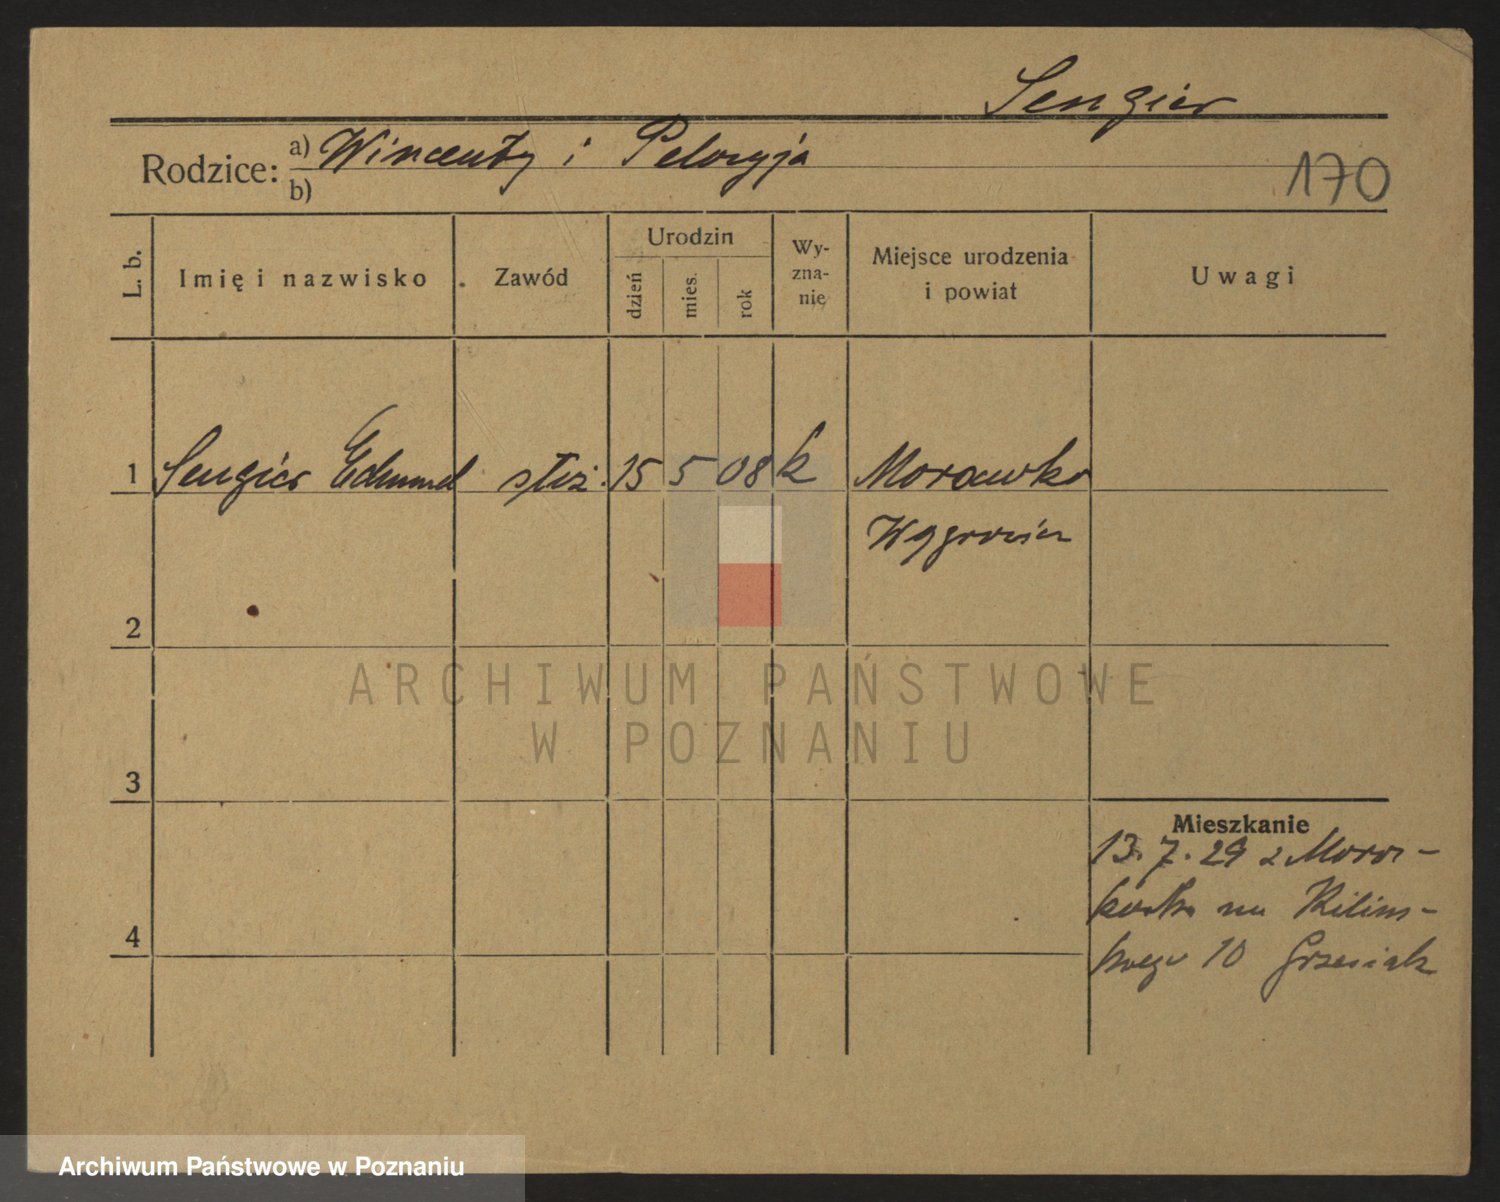 Sengier
Rodzice: a) Wincenty i Pelagyja
b)
170
L. b.
Imię i nazwisko
Zawód
Urodzin
dzień
mies.
rok
Wy-
zna-
nie
Miejsce urodzenia
i powiat
Uwagi
1 Sengier Edmund służ. 15 5 08 k Morawko
Wągrowiec
2
3
4
Mieszkanie
13. 7. 29 z
na Kilińs-
kiego 10 Grzesiak
ARCHIWUM PAŃSTWOWE
W POZNANIU
Archiwum Państwowe w Poznaniu